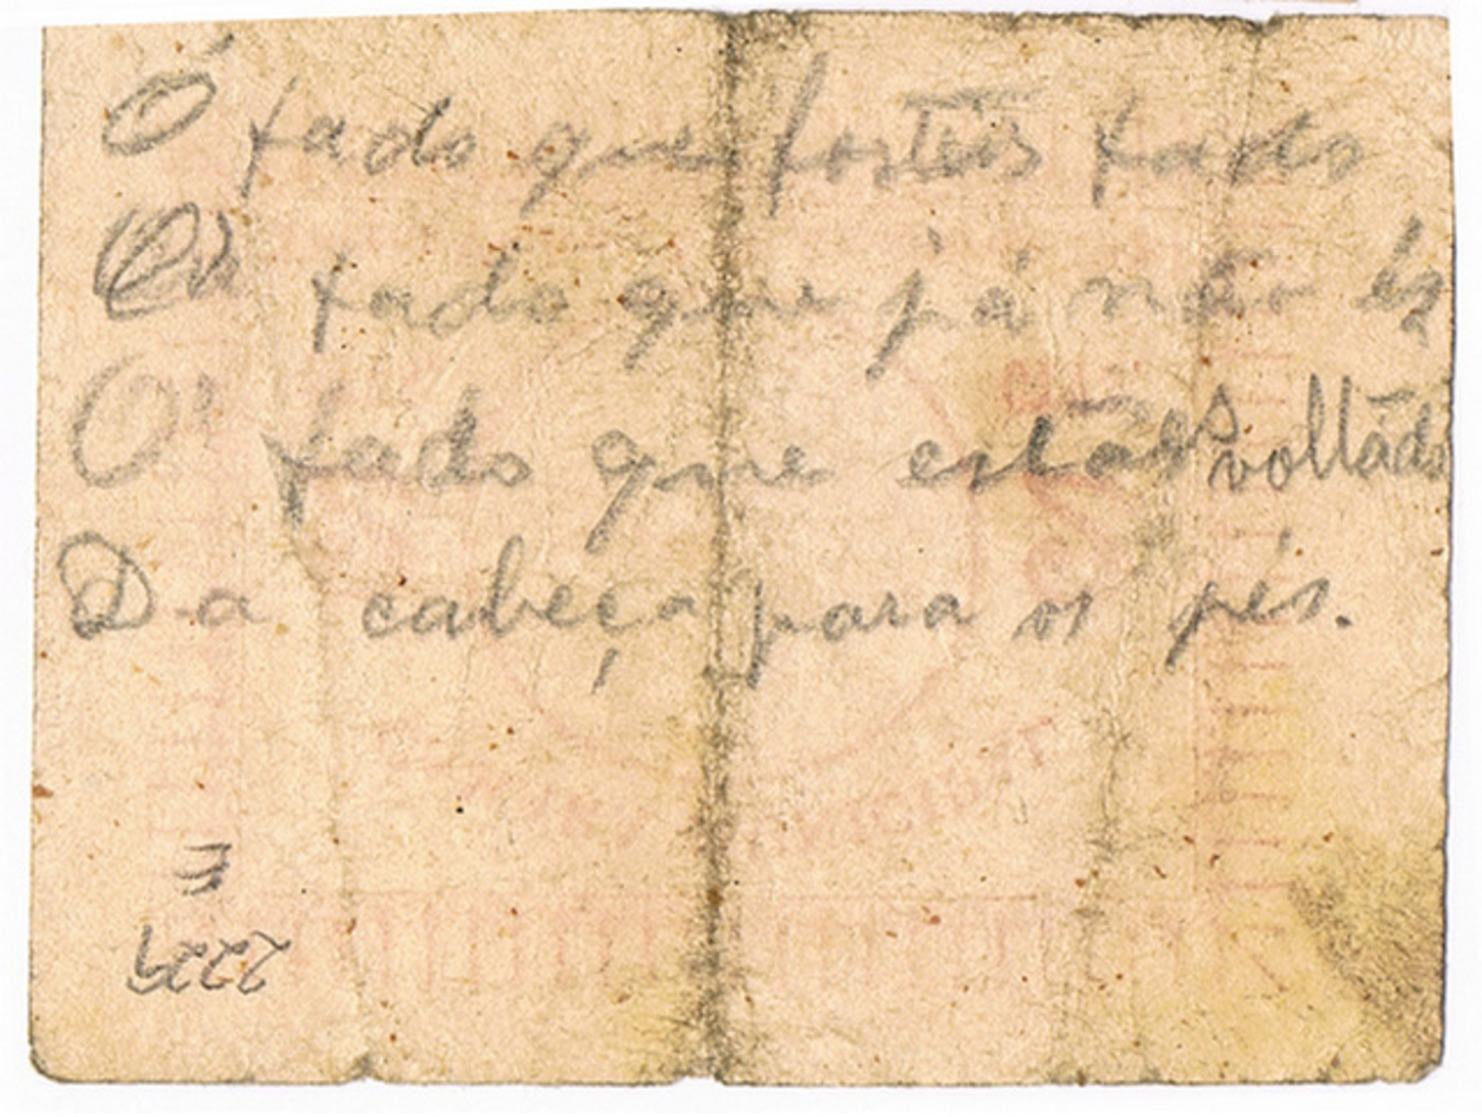 Ó fado que fosteis fado
Ó fado que já não és
O' fado que estás voltádo
Da cabeça para os pés.
E
2229